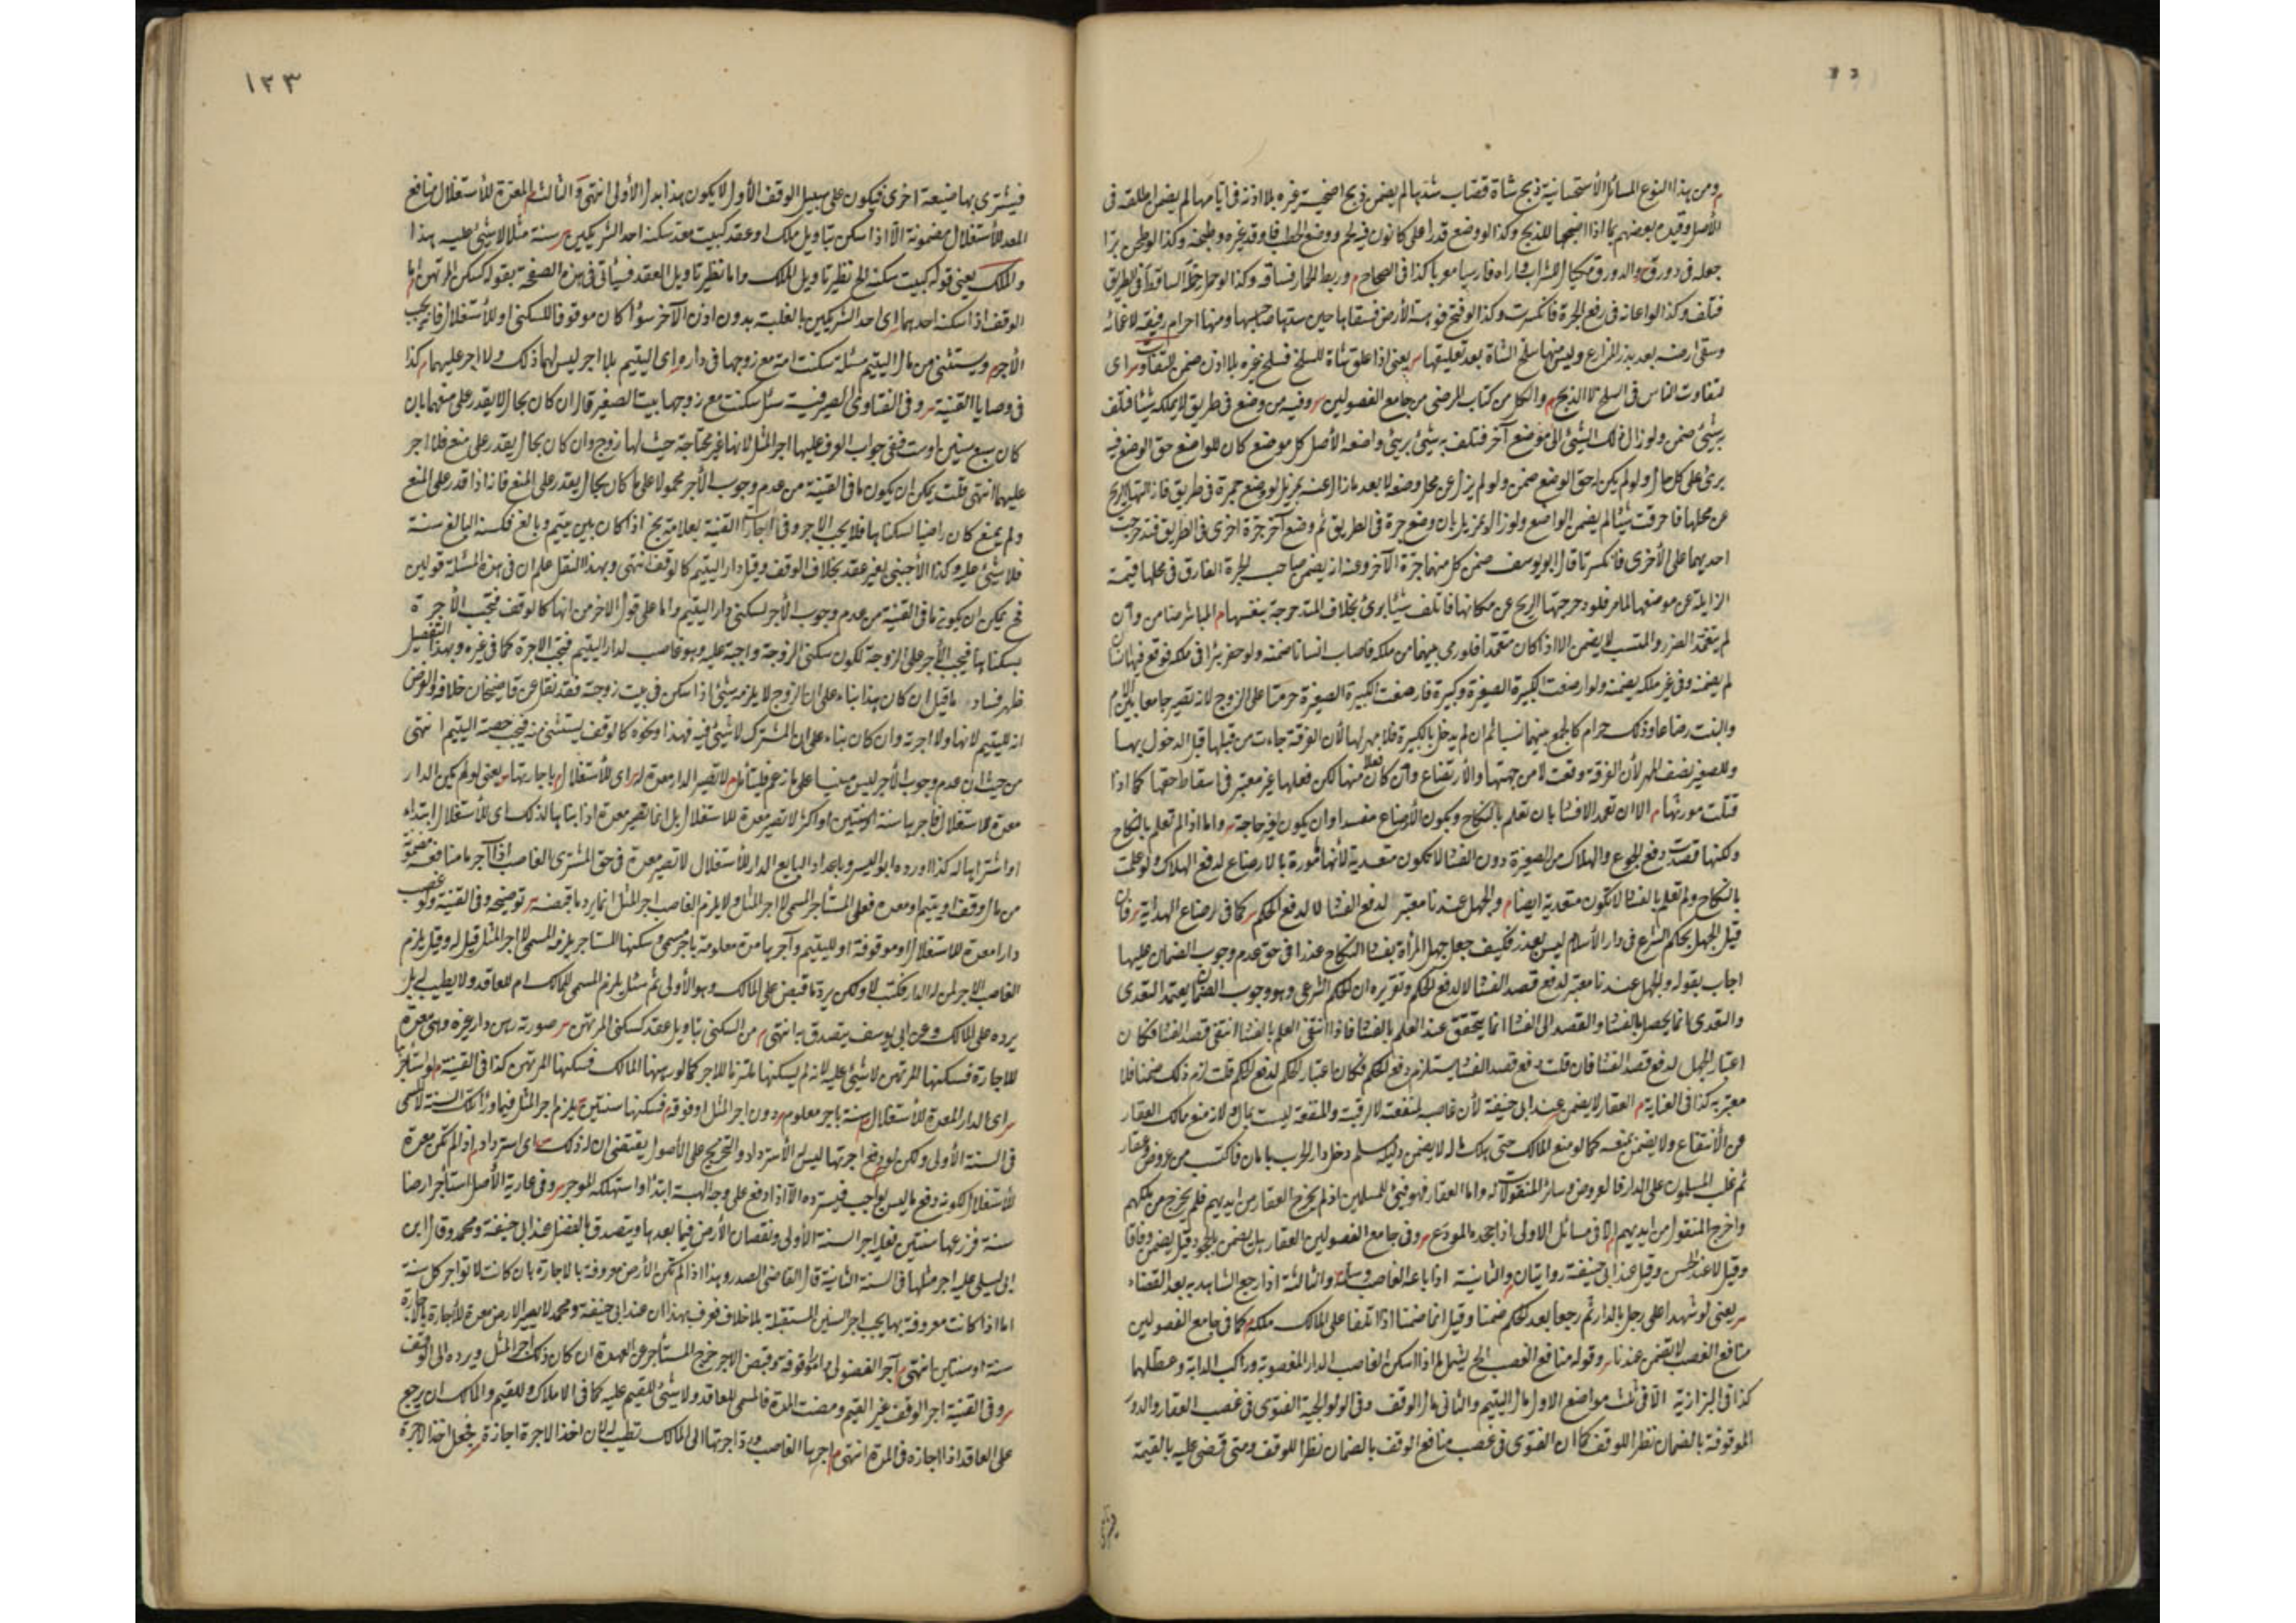 ومن هذا النوع المسائل الاستحسانية ذبح شاة قصاب شدها لم يضمن ذبح اضحية غيره بلا اذنه في ايامها لم يضمن اطلقه في
الأصل وقيده بعضهم بما اذا اضجعها للذبح وكذا لو وضع قدرا على كانون فيه لحم ووضع الحطب فاوقد غيره وطبخه وكذا لو طحن برا
جعله في دورق والدورق مكيال للشراب واراه فارسيا معربا كذا في الصحاح وربط الحمار فساقه وكذا لو حمل حمله الساقط في الطريق
فتلف وكذا لو اعانه في رفع الجرة فانكسرت وكذا لو فتح فوهة الأرض فسقاها حين سدها صاحبها ومنها احرام رفيقه لاغمائه
وسقى ارضه بعد بذر المزارع وليس منها سلخ الشاة بعد تعليقها يعني اذا علق شاة للسلخ فسلخ غيره بلا اذن ضمن للتفاوت اي
لتفاوت الناس في السلخ لا الذبح والكل من كتاب المرضى من جامع الفصولين وفيه من وضع في طريق لا يملكه شيئا فتلف
به شئ ضمن ولو زال ذلك الشئ الى موضع آخر فتلف به شئ برئ واضعه الأصل كل موضع كان للواضع حق الوضع فيه
برئ على كل حال ولو لم يكن له حق الوضع ضمن ولو لم يزل عن محل وضعه لا بعد ما زال عنه بمزيل لو وضع جمرة في طريق فازالتها الريح
عن محلها فاحرقت شيئا لم يضمن الواضع ولو زال لا بمزيل بان وضع جرة في الطريق ثم وضع آخر جرة اخرى في الطريق فتدحرجت
احديهما على الأخرى فانكسرتا قال ابو يوسف ضمن كل منهما جرة الآخر وعنه انه يضمن صاحب الجرة القارة في محلها قيمة
الزايلة عن موضعها لما مر فلو دحرجتها الريح عن مكانها فاتلف شيئا برئ بخلاف المتدحرجة بنفسها المباشر ضامن وان
لم يتعمد الضرر والمتسبب لا يضمن الا اذا كان متعمدا فلو رمى سهما من ملكه فاصاب انسانا ضمنه ولو حفر بئرا في ملكه فوقع فيها انسان
لم يضمنه وفي غير ملكه يضمنه ولو ارضعت الكبيرة الصغيرة وكبيرة فارضعت الكبيرة الصغيرة حرمتا على الزوج لانه يصير جامعا بين الام
والبنت رضاعا وذلك حرام كالجمع بينهما نسبا ثم ان لم يدخل بالكبيرة فلا مهر لها لأن الفرقة جاءت من قبلها قبل الدخول بها
وللصغيرة نصف المهر لأن الفرقة وقعت لا من جهتها والأرتضاع وان كان فعلا منها لكن فعلها غير معتبر في اسقاط حقها كما اذا
قتلت مورثها الا ان تعمد الافساد بان تعلم بالنكاح ويكون الأرضاع مفسدا وان يكون لغير حاجة واما اذا لم تعلم بالنكاح
ولكنها قصدت دفع الجوع والهلاك من الصغيرة دون الفساد لا تكون متعدية لأنها مأمورة بالارضاع لدفع الهلاك ولو علمت
بالنكاح ولم تعلم بالفساد لا تكون متعدية ايضا والجهل عندنا معتبر لدفع الفساد لا لدفع الحكم كما في ارضاع الهداية فان
قيل الجهل بحكم الشرع في دار الأسلام ليس بعذر فكيف جعل جهل المرأة بفساد النكاح عذرا في حق عدم وجوب الضمان عليها
اجاب بقوله والجهل عندنا معتبر لدفع قصد الفساد لا لدفع الحكم وتقريره ان الحكم الشرعي وهو وجوب الضمان يعتمد التعدي
والتعدي انما يحصل بالفساد والقصد الى الفساد انما يتحقق عند العلم بالفساد فاذا انتفى العلم بالفساد انتفى قصد الفساد فكان
اعتبار الجهل لدفع قصد الفساد فان قلت دفع قصد الفساد يستلزم دفع الحكم فكان اعتبار الحكم لدفع الحكم قلت لزم ذلك ضمنا فلا
معتبر به كذا في العناية العقار لا يضمن عند ابي حنيفة لأن غاصب لمنفعته لا لرقبته والمنفعة ليست بمال لانه منع مالك العقار
عن الأنتفاع ولا يضمن بمنعه كما لو منع المالك حتى هلك ماله لا يضمن دليله مسلم دخل دار الحرب بامان فاكتسب من عروض وعقار
ثم غلب المسلمون على الدار فالعروض وسائر المنقولات له واما العقار فهو فيئ للمسلمين اذ لم يخرج العقار من ايديهم فلم يخرج من ملكهم
واخرج المنقول من ايديهم الا في مسائل الاولى اذا جحده المودع وفي جامع الفصولين العقار هل يضمن بالجحود قيل يضمن وفاقا
وقيل لا عند الحسن وقيل عند ابي حنيفة روايتان والثانية اذا باعه الغاصب وسلمه والثالثة اذا رجع الشاهد به بعد القضاء
يعني لو شهدا على رجل بالدار ثم رجعا بعد الحكم ضمنا وقيل انما ضمنا اذا اتلفا على المالك ملكه كما في جامع الفصولين
منافع الغصب لا تضمن عندنا وقوله منافع الغصب الخ يشمل لما اذا سكن الغاصب الدار المغصوبة وراكب الدابة وعطلها
كذا في البزازية الا في ثلث مواضع الاول مال اليتيم والثاني مال الوقف وفي الولوالجية الفتوى في غصب العقار والدور
الموقوفة بالضمان نظرا للوقف كما ان الفتوى في غصب منافع الوقف بالضمان نظرا للوقف ومتى قضى عليه بالقيمة
١٣٣
فيشترى بها ضيعة اخرى فيكون على سبيل الوقف الأول لا يكون هذا بدل الأولى انتهى والثالث المعدة للأستغلال منافع
المعد للأستغلال مضمونة الا اذا سكن بتاويل ملك او عقد كبيت معد سكنه احد الشريكين سنة مثلا لا شئ عليه هذا
والملك يعني قوله كبيت سكنه الخ نظير تاويل الملك واما نظير تاويل العقد فسيأتي في هذه الصفحة بقوله كسكن المرتهن اما
الوقف اذا سكنه احدهما اي احد الشريكين بالغلبة بدون اذن الآخر سواء كان موقوفا للسكنى او للأستغلال فانه يجب
الأجر ويستثنى من مال اليتيم مسئلة سكنت امه مع زوجها في داره اي اليتيم بلا اجر ليس لهما ذلك ولا اجر عليهما كذا
في وصايا القنية وفي الفتاوى الصيرفية سئل سكنت مع زوجها بيت الصغير قال ان كان بحال لا يقدر على منعهما بان
كان سبع سنين او ست ففي جواب العرف عليها اجر المثل لانها غير محتاجة حيث لها زوج وان كان بحال يقدر على منع فلا اجر
عليهما انتهى قلت يمكن ان يكون ما في القنية من عدم وجوب الأجر محمولا على ما كان بحال يقدر على المنع فانه اذا قدر على المنع
ولم يمنع كان راضيا بسكناها فلا يجب الاجر وفي اجارات القنية بعلامة بخ اذا كان بين يتيم وبالغ فسكنه البالغ سنة
فلا شئ عليه وكذا الأجنبي بغير عقد بخلاف الوقف وقيل دار اليتيم كالوقف انتهى وبهذا النقل علم ان في هذه المسئلة قولين
فح يمكن ان يكون ما في القنية من عدم وجوب الأجر لسكنى دار اليتيم واما على قول الاخر من انها كالوقف فتجب الأجرة
بسكناها فيجب الأجر على الزوج لكون سكنى الزوجة واجبة عليه وهو غاصب لدار اليتيم فيجب الاجرة كما في غيره وبهذا التفصيل
ظهر فساد ما قيل ان كان هذا بناء على ان الزوج لا يلزمه شئ اذا سكن في بيت زوجته فقد نقل عن قاضيخان خلافه والفرض
انه لليتيم لا لها ولا اجر له وان كان بناء على ان المشترك لا شئ فيه فهذا ونحوه كالوقف يستثنى منه فيجب حصة اليتيم انتهى
من حيث ان عدم وجوب الأجر ليس مبنيا على ما زعم فليتأمل لا تصير الدار معدة له اي للأستغلال باجارتها يعني لو لم تكن الدار
معدة للاستغلال فاجرها سنة او سنتين او اكثر لا تصير معدة للاستغلال بل انما تصير معدة اذا بناها لذلك اي للأستغلال ابتداء
او اشتراها له كذا اورده ابو اليسر وباعداد البايع الدار للأستغلال لا تصير معدة في حق المشتري الغاصب اذا آجر ما منافعه مضمونة
من مال وقف او يتيم او معدة فعلى المستأجر المسمى لا اجر المثل ولا يلزم الغاصب اجر المثل انما يرد ما قبضه توضيحه وفي القنية ولو غصب
دارا معدة للاستغلال او موقوفة او لليتيم وآجرها مدة معلومة باجر مسمى وسكنها المستاجر يلزمه المسمى لا اجر المثل قيل له وقيل يلزم
الغاصب الاجر لمن له الدار فكتب لا ولكن يرد ما قبض على المالك وهو الأولى ثم سئل يلزم المسمى للمالك ام للعاقد ولا يطيب له بل
يرده على المالك وعن ابي يوسف يتصدق به انتهى من السكنى بتاويل عقد كسكنى المرتهن صورته رهن دار غيره وهي معدة
للاجارة فسكنها المرتهن لا شئ عليه لانه لم يسكنها ملتزما للاجر كما لو رهنها المالك فسكنها المرتهن كذا في القنية ولو استأجرها
اي الدار المعدة للأستغلال سنة باجر معلوم دون اجر المثل او فوقه فسكنها سنتين يلزم اجر المثل فيما وراء تلك السنة لا المسمى
في السنة الأولى ولكن لو دفع اجرتها ليس له الأسترداد والتخريج على الأصول يقتضي ان له ذلك اي استرداده اذا لم تكن معدة
للأستغلال لكونه دفع ما ليس بواجب فيسترده الا اذا دفع على وجه الهبة ابتداء او استهلكه الموجر وفي عارية الأصل استأجر ارضا
سنة فزرعها سنتين فعليه اجر السنة الأولى ونقصان الأرض فيما بعدها ويتصدق بالفضل عند ابي حنيفة ومحمد وقال ابن
ابي ليلى عليه اجر مثلها في السنة الثانية قال القاضي الصدر وهذا اذا لم تكن الأرض معروفة بالاجارة بان كانت لا تواجر كل سنة
اما اذا كانت معروفة بها يجب اجر السنين المستقبلة بلا خلاف فعرف بهذا ان عند ابي حنيفة ومحمد لا يصير الارض معدة للأجارة باجارة
سنة او سنتين انتهى آجر الفضولي دارا موقوفة وقبض الاجر خرج المستأجر عن العهدة ان كان ذلك اجر المثل ويرده الى الوقف
وفي القنية اجر الوقف غير القيم ومضت المدة فالمسمى للعاقد ولا شئ للقيم عليه كما في الاملاك وللقيم والمالك ان يرجع
على العاقد اذا اجازه في المدة انتهى اجرها الغاصب ورد اجرتها الى المالك تطيب له لان اخذ الاجرة اجازة فجعل اخذ الاجرة